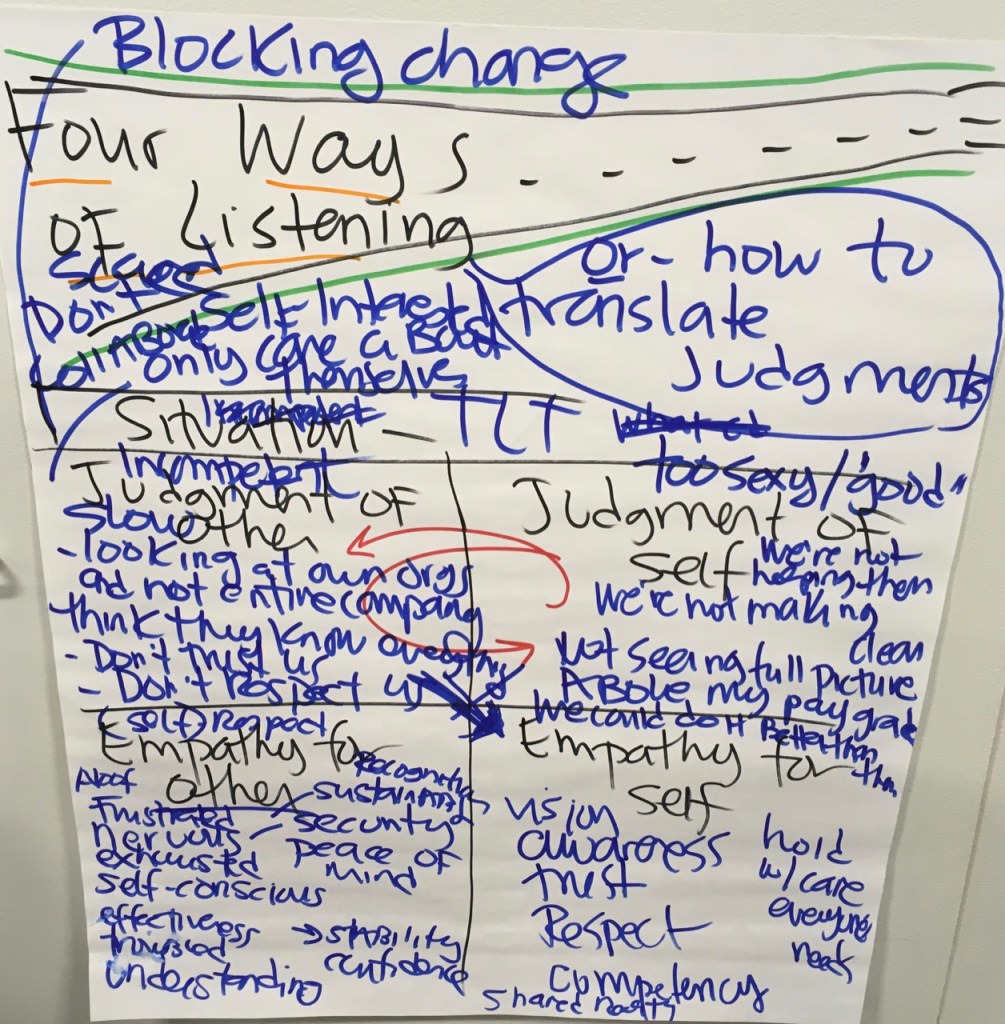 Blocking change
Four Ways
of Listening
or - how to
translate
Judgments
Don't
Collaborate
Self-Interested
only care about
themselves
Situation - TLT
Incompetent
too sexy/"good"
Judgment of
other
Slow
- looking at own orgs
and not entire company
think they know everything
- Don't trust us
- Don't respect us
(self) respect
Judgment of
self
we're not
helping them
we're not making
clean
Not seeing full picture
Above my pay grade
we could do it better than
them
Empathy for
other
Aloof
Frustrated
nervous
exhausted
self-conscious
effectiveness
understanding
Recognition
sustainability
security
peace of
mind
→ stability
confidence
Empathy for
self
vision
awareness
trust
Respect
competency
shared reality
hold
w/ care
everyone's
needs